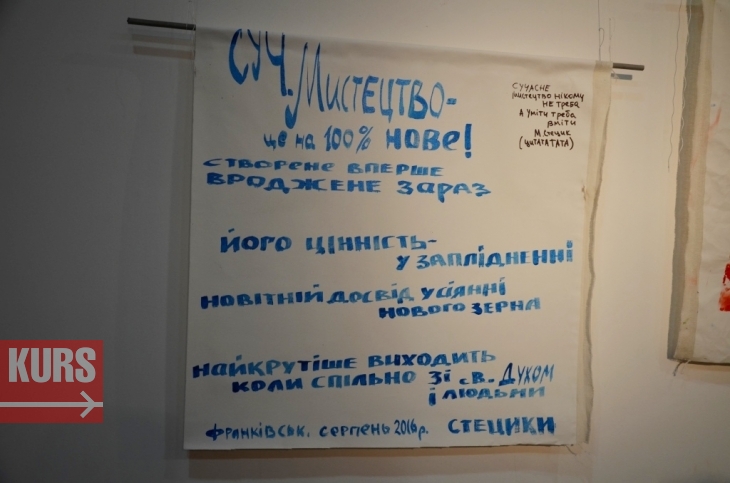 СУЧ. МИСТЕЦТВО-
це на 100% НОВЕ!
СТВОРЕНЕ ВПЕРШЕ
ВРОДЖЕНЕ ЗАРАЗ
ЙОГО ЦІННІСТЬ-
У ЗАПЛІДНЕННІ
НОВІТНІЙ ДОСВІД УСІЯННІ
НОВОГО ЗЕРНА
НАЙКРУТІШЕ ВИХОДИТЬ
КОЛИ СПІЛЬНО ЗІ СВ. ДУХОМ
І ЛЮДЬМИ
ФРАНКІВСЬК, СЕРПЕНЬ 2016р. СТЕЦИКИ
СУЧАСНЕ
МИСТЕЦТВО НІКОМУ
НЕ ТРЕБА
А УМІТИ ТРЕБА
ВМІТИ
М.СТЕЦИК
(ЦИТАТА ТАТА)
KURS